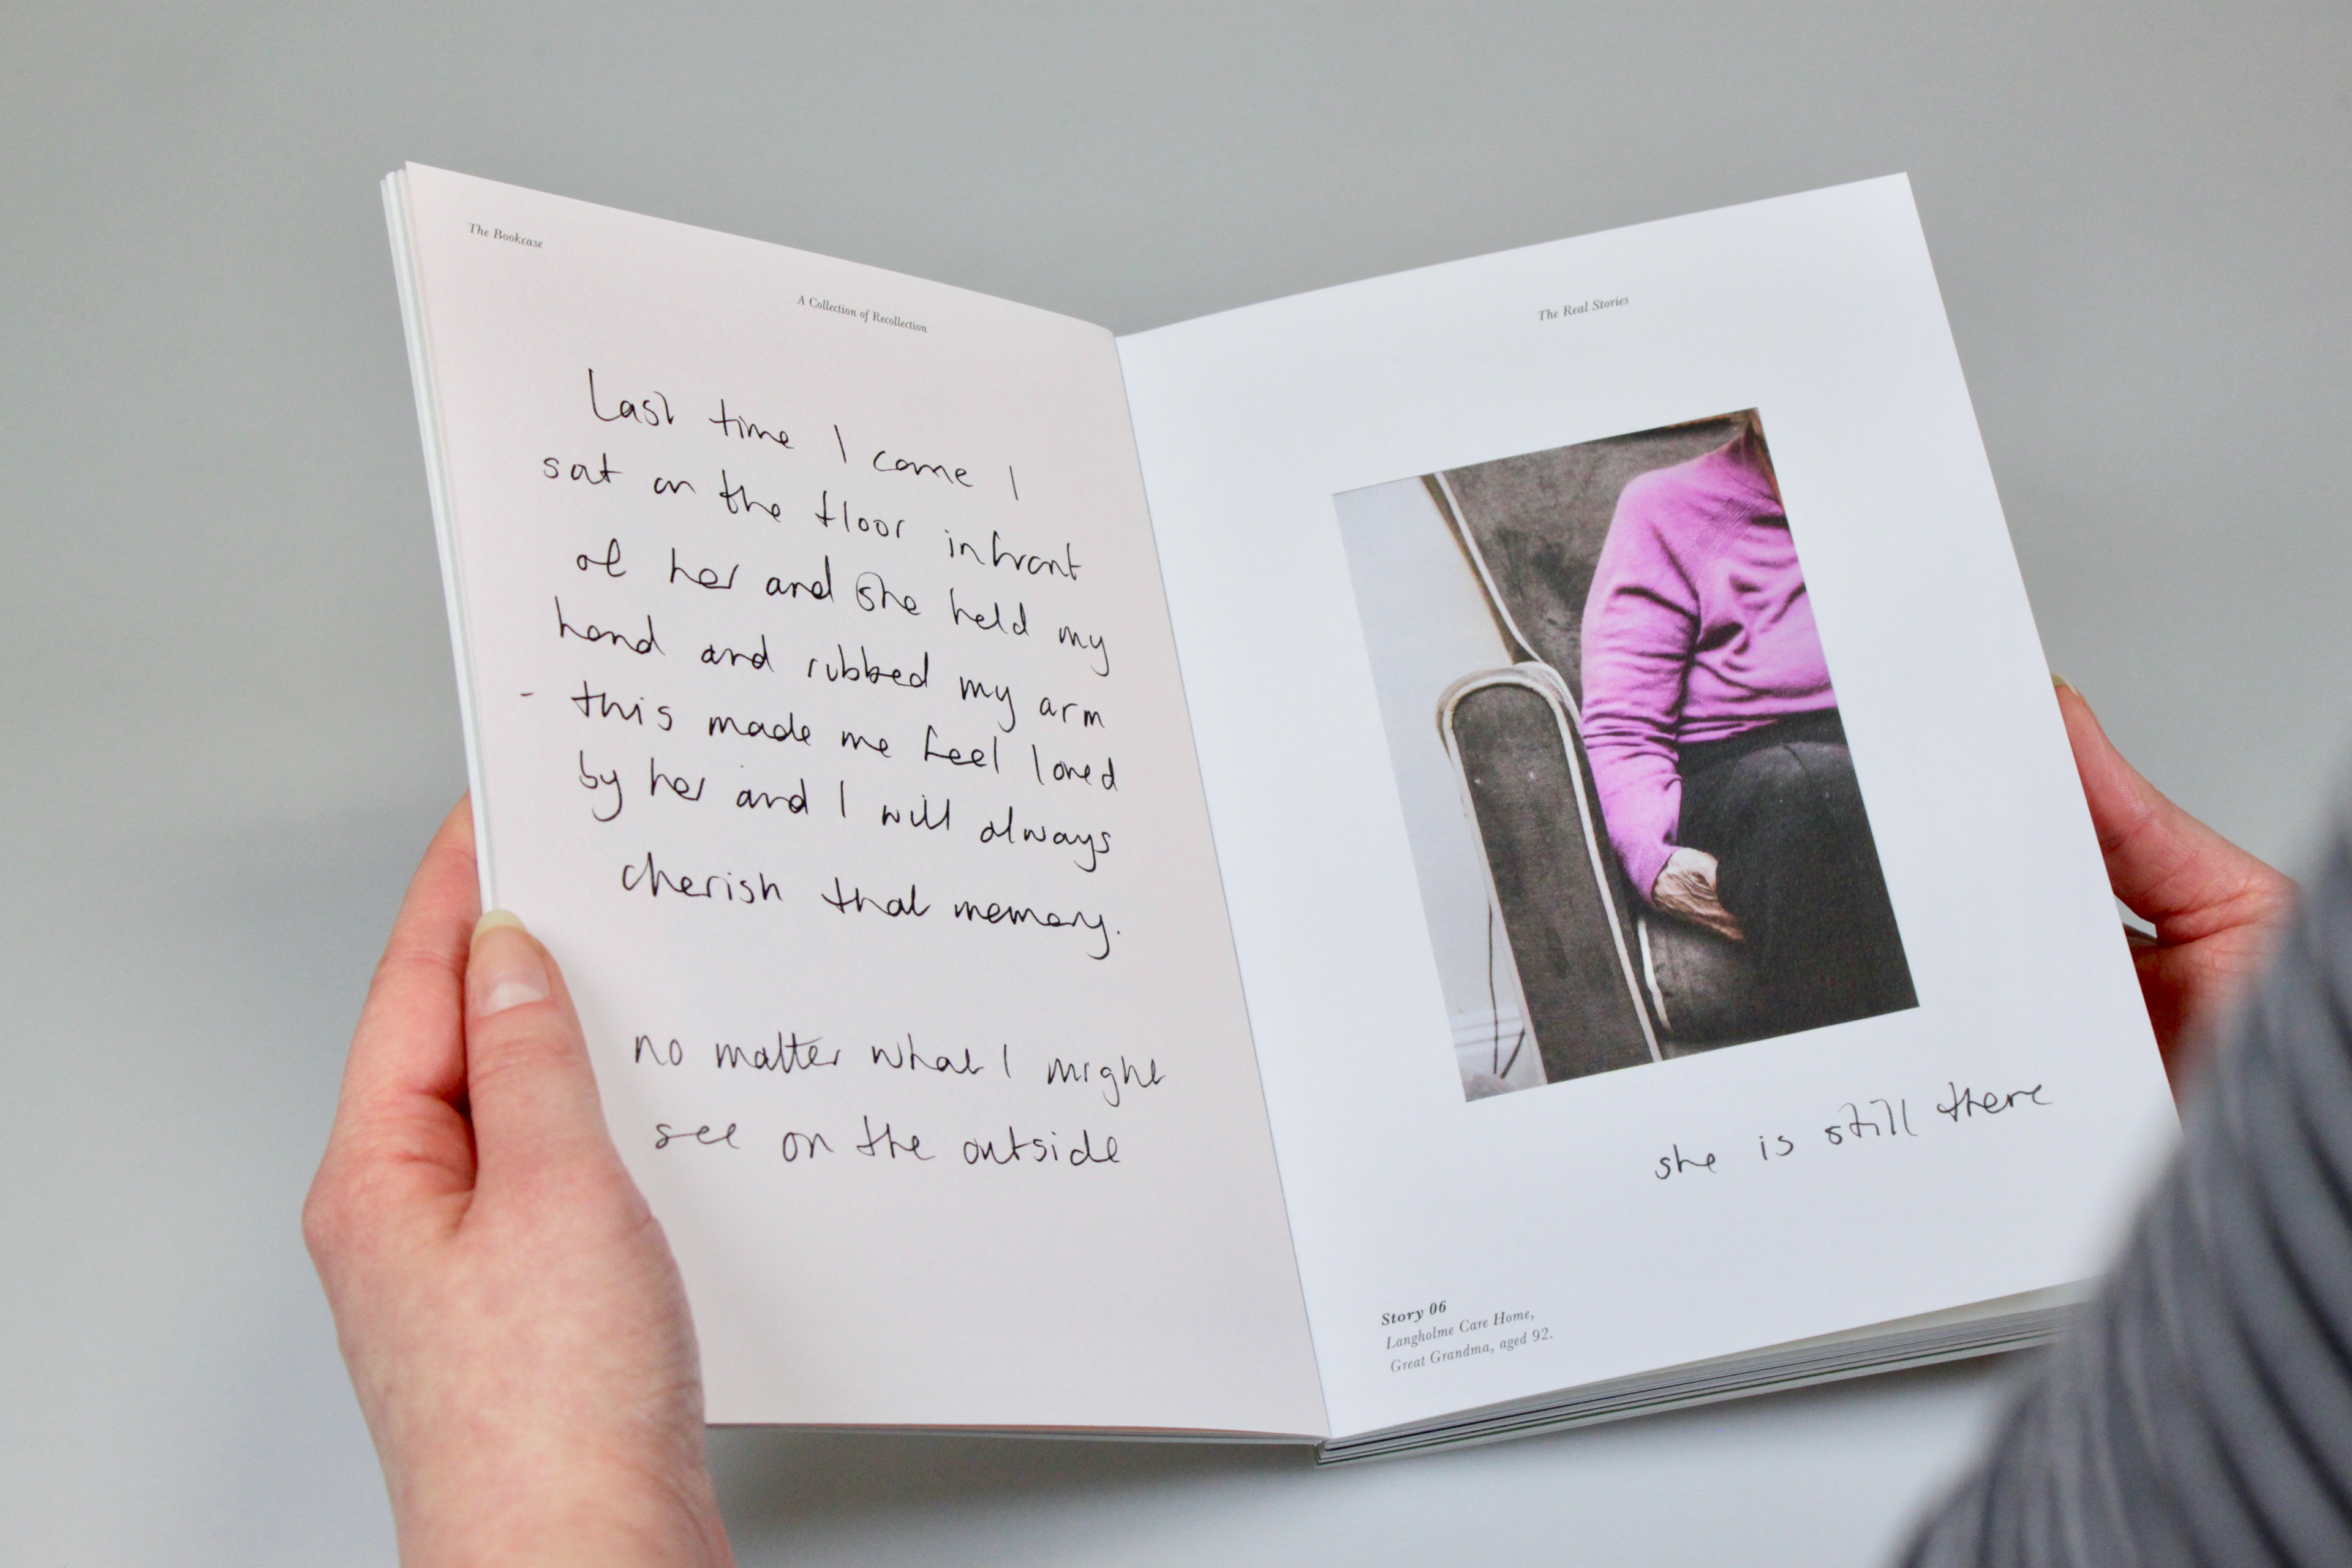 The Bookcase
A Collection of Recollection
Last time I come I
sat on the floor infront
of her and she held my
hand and rubbed my arm
- this made me feel loved
by her and I will always
cherish that memory.
no matter what I might
see on the outside
The Real Stories
she is still there
Story 06
Langholme Care Home,
Great Grandma, aged 92.